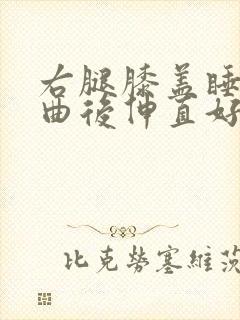 右腿膝盖睡
曲後伸直好
比克勞塞維茨